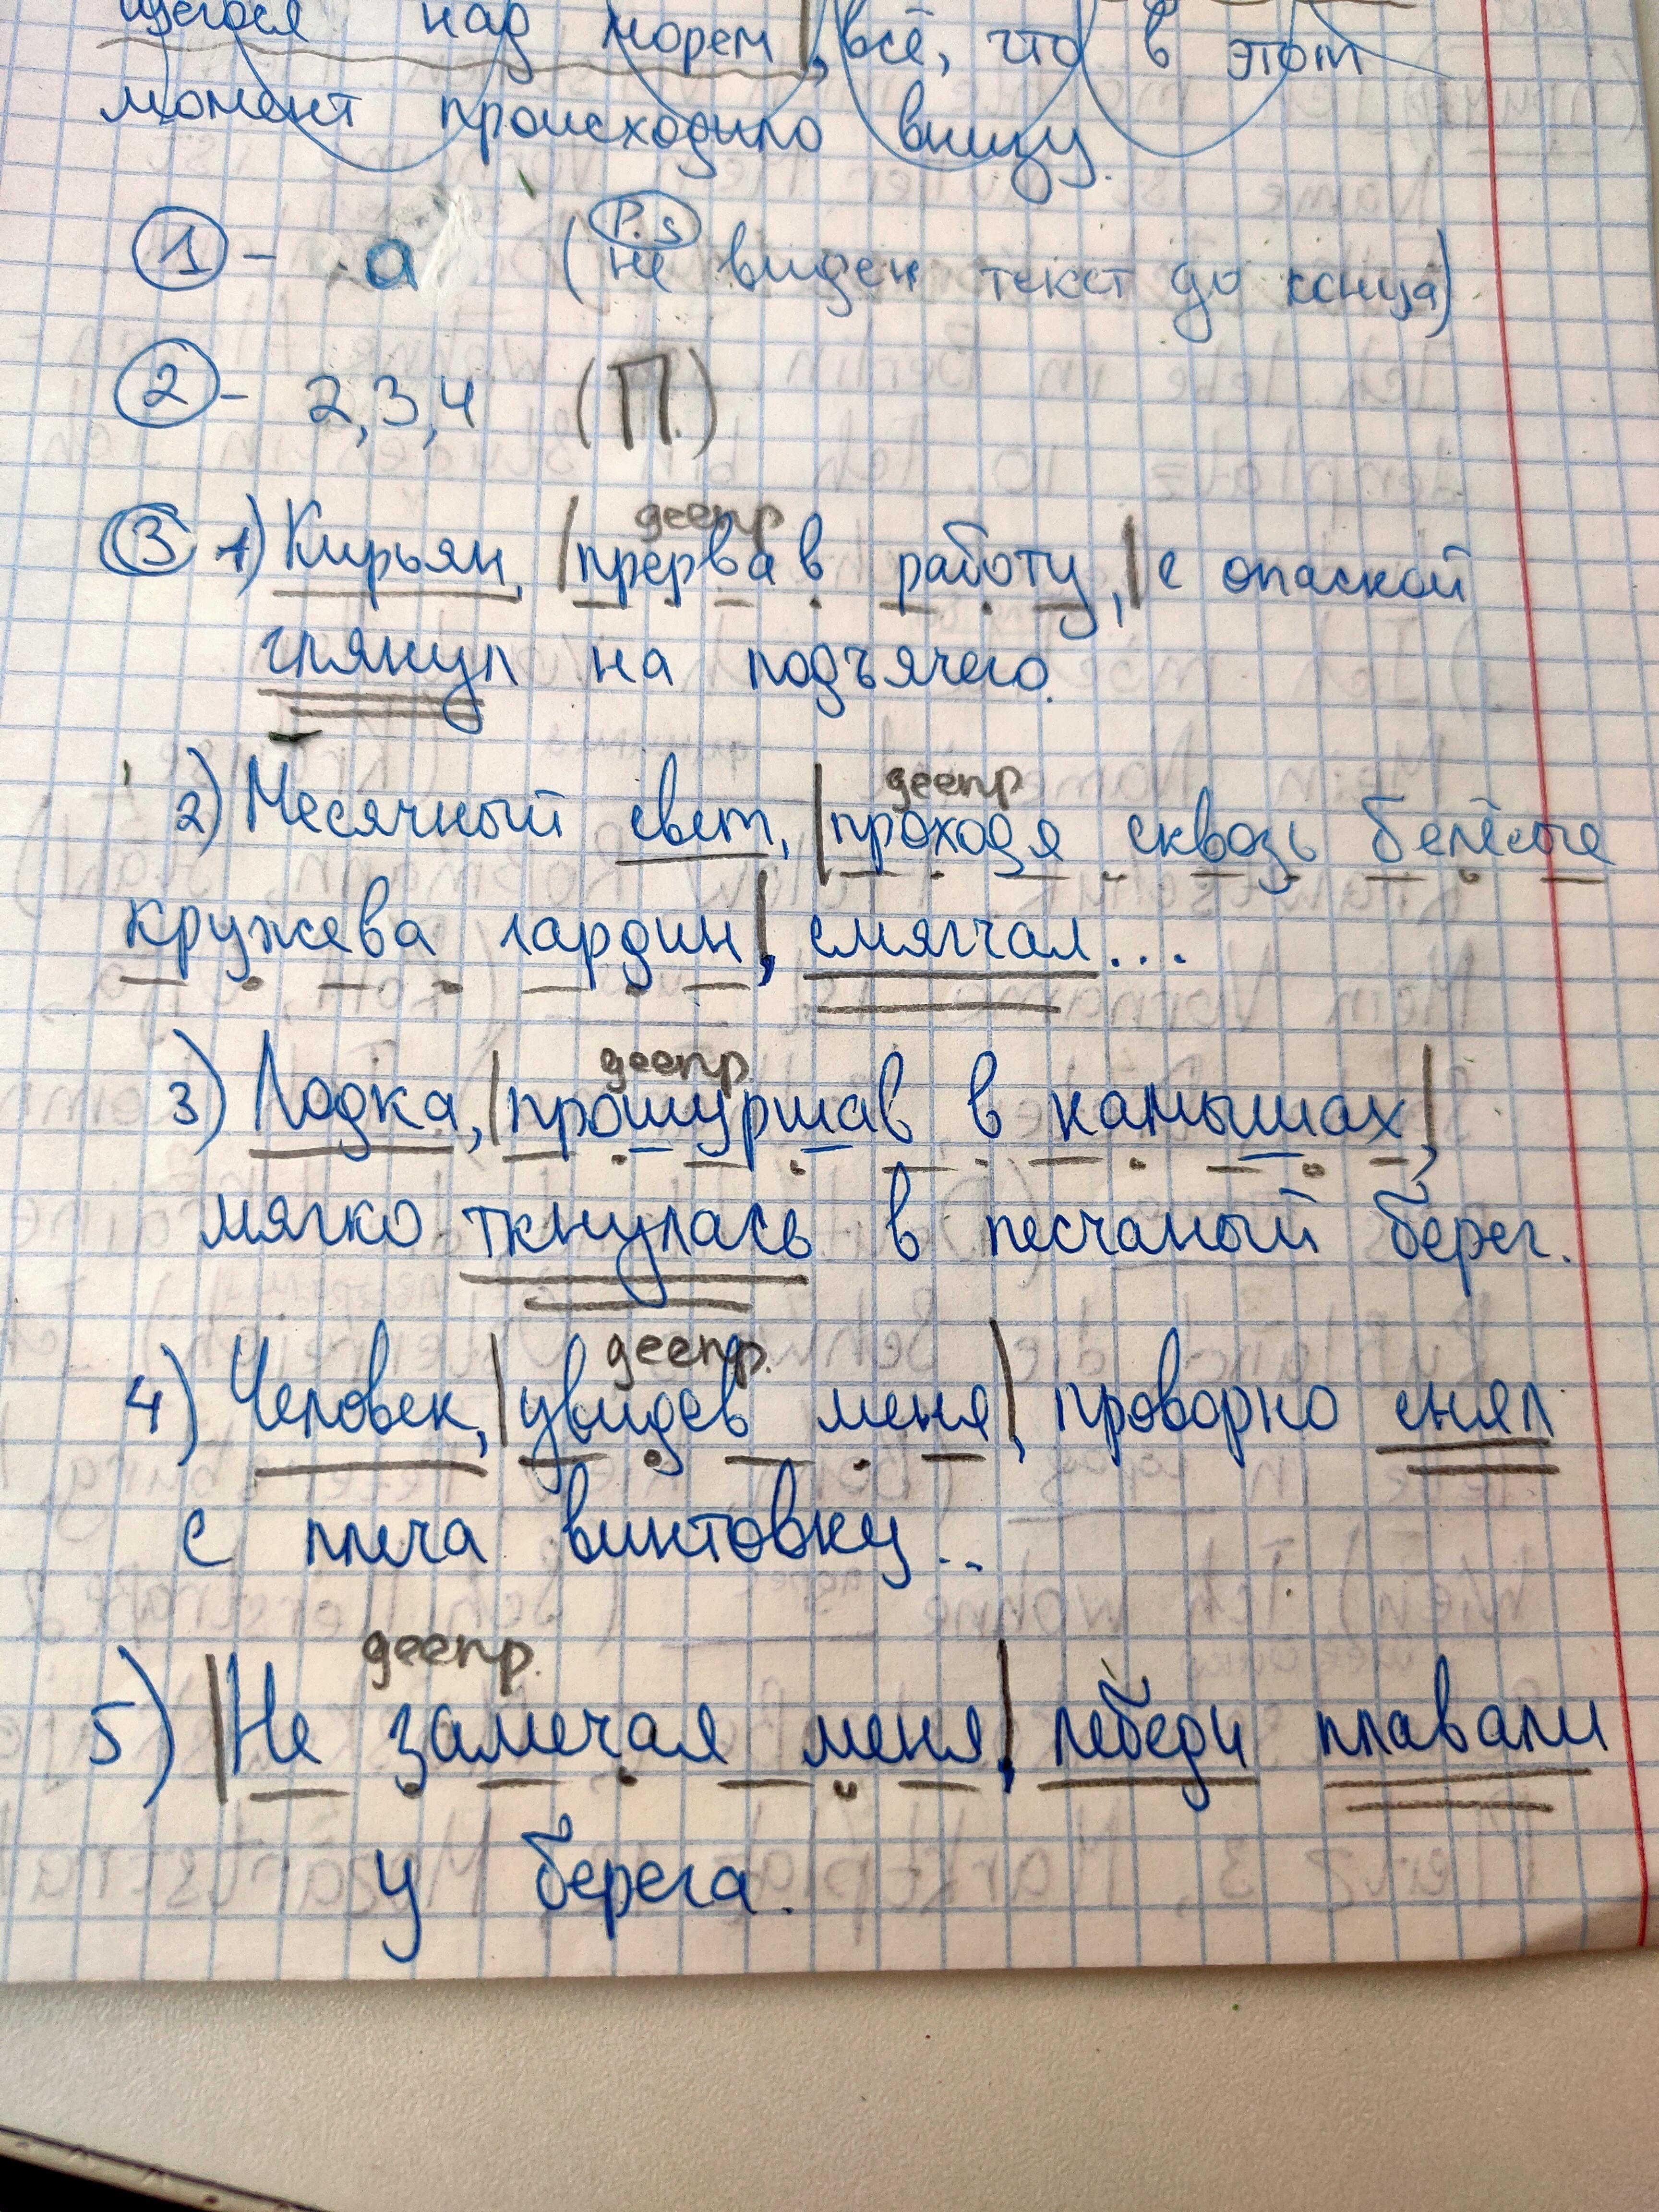 щегося над морем, всё, что в этот
момент происходило внизу.
1 - а (P.s не виден текст до конца)
2 - 2,3,4 (П.)
деепр
3 1) Кирьян, |прервав работу,| с опаской
глянул на подъячего.
деепр
2) Месячный свет, |проходя сквозь белёсые
кружева гардин|, смягчал...
деепр
3) Лодка, |прошуршав в камышах|,
мягко ткнулась в песчаный берег.
деепр.
4) Человек, |увидев меня|, проворно снял
с плеча винтовку..
деепр.
5) |Не замечая меня|, лебеди плавали
у берега.